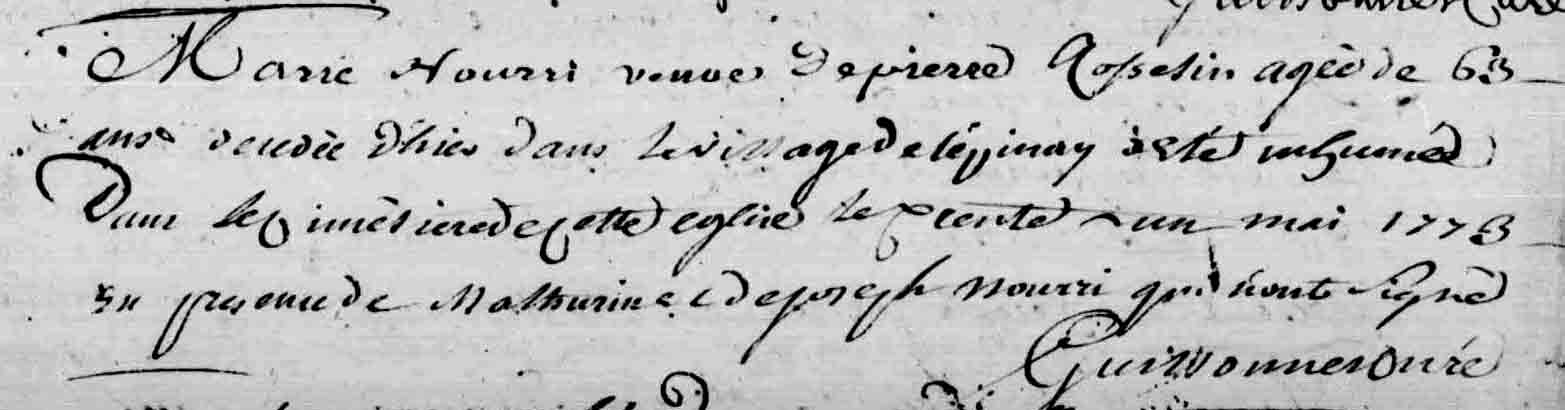 Marie Nourri veuve de pierre Rosselin agée de 63
ans décédée d'hier dans le village de lépinay à été inhumée
Dans le cimétiere de cette eglise le trente un mai 1773
en presence de Mathurin et de joseph nourri qui n'ont signé
Guissonner Curé